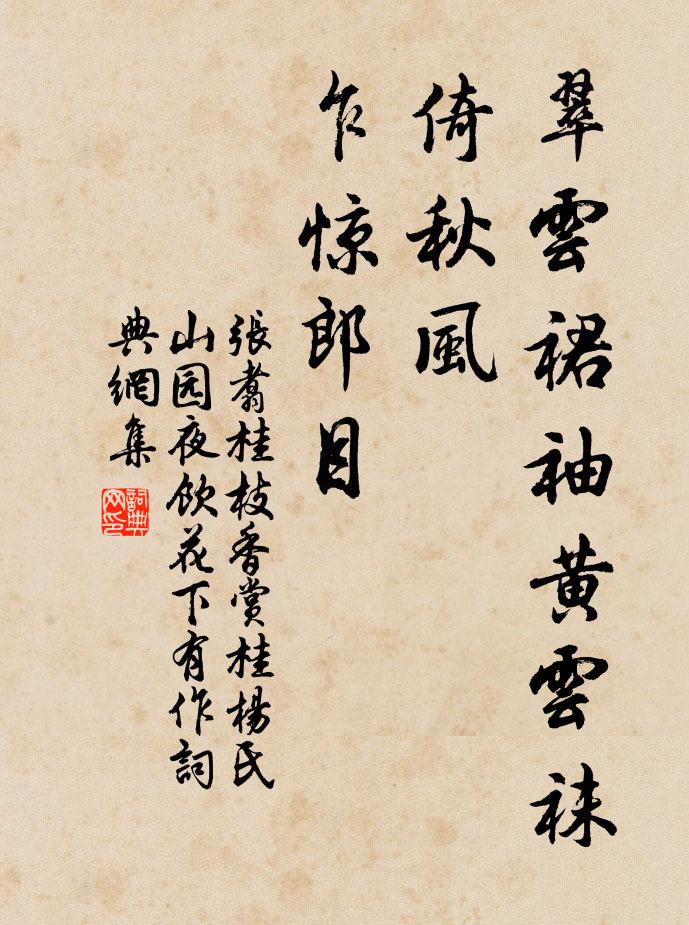 翠雲裙袖黄雲袜
倚秋風
乍惊郎目
張翥桂枝香賞桂楊氏
山园夜饮花下有作詞
典網集
詞典
网印